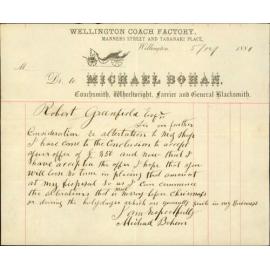 WELLINGTON COACH FACTORY,
MANNERS STREET AND TARANAKI PLACE,
Wellington, 188
M
Dr. to MICHAEL BOHAN,
Coachsmith, Wheelwright, Farrier and General Blacksmith.
Robert Greenfield Esqr
Sir in further
Consideration & altertation to my shop
I have come to the Conclusion to accept
your offer of £ 350 and now that I
have accepted the offer I hope that you
will lose no time in placing that amount
at my disposal so as I can commence
the alterations that is merry before Christmas
or during the holydays which are generally quiet in my Business
I am respectfully
Michael Bohan